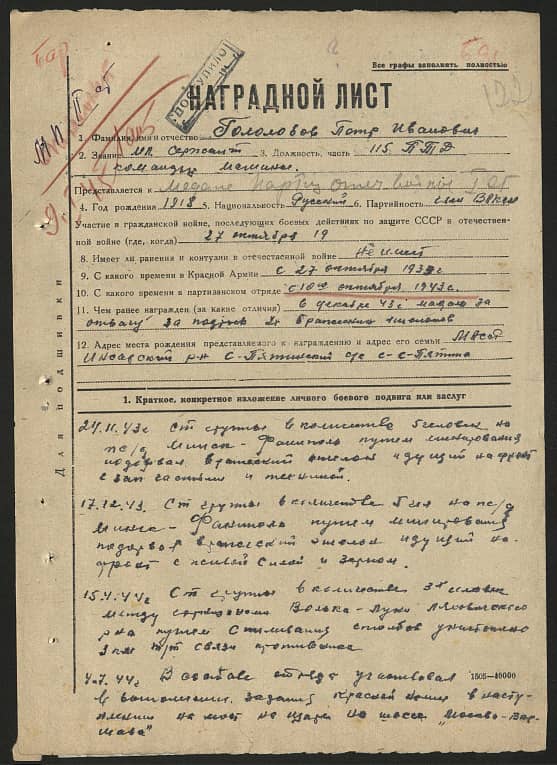 Бар
Ба
Все графы заполнять полностью
122
ПОСТУПИЛО
НАГРАДНОЙ ЛИСТ
1. Фамилия, имя и отчество Гололобов Петр Иванович
2. Звание мл. Сержант 3. Должность, часть 115 ПТД
командир
Представляется к Медали Партиз отеч войны
4. Год рождения 1918 5. Национальность Русский 6. Партийность член ВЛКСМ
Участие в гражданской войне, последующих боевых действиях по защите СССР в отечествен-
ной войне (где, когда) 27 октября 19
8. Имеет ли ранения и контузии в отечественной войне Не имеет
9. С какого времени в Красной Армии с 27 октября 1939г
10. С какого времени в партизанском отряде с 10го октября 1943 г.
11. Чем ранее награжден (за какие отличия) в декабре 43 г. медаль за
отвагу за подрыв 2х вражеских эшелонов
12. Адрес места рождения представляемого к награждению и адрес его семьи МАССР
Инсарский р-н с-Пятинский с/с с-с-Пятина
Для подшивки
1. Краткое, конкретное изложение личного боевого подвига или заслуг
24.11.43г Ст группы в количестве 5 человек на
Минск-Фаниполь путем минирования
подорвал вражеский эшелон идущий на фронт
с зап частями и техникой.
17.12.43. Ст группы в количестве 5 чел на
Минск-Фаниполь путем минирования
подорвал вражеский эшелон идущий на
фронт с живой Силой и Зерном.
15.4.44г Ст группы в количестве 3х человек
между гарнизонами Волька-Луки Ляховичского
р-на путем Спиливания столбов уничтожено
3 км т/т связи противника
4.7.44г. В составе отряда участвовал
1505-40000
в выполнении задания Красной Армии в насту-
плении на мост на Щаре на шоссе „Москва-Вар-
шава"